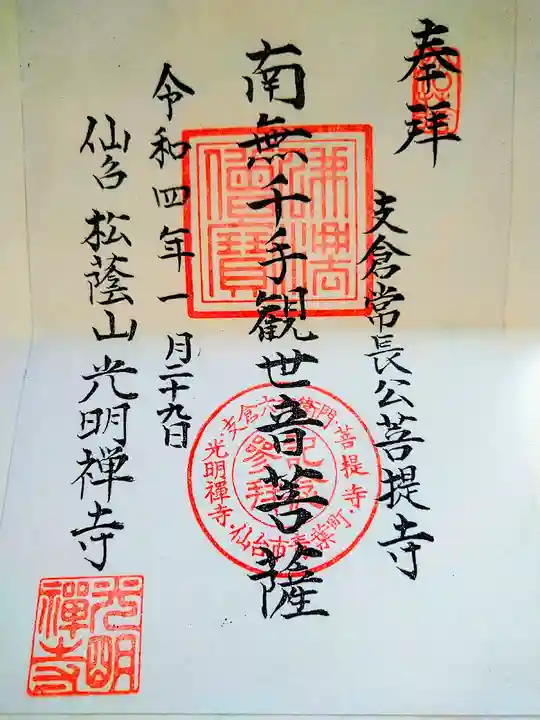 奉拝
支倉常長公菩提寺
南無千手観世音菩薩
佛法僧寶
支倉六右衛門菩提寺
光明禅寺・仙台市青葉町
参拝記念
令和四年一月二十九日
仙台 松蔭山 光明禅寺
光明禅寺